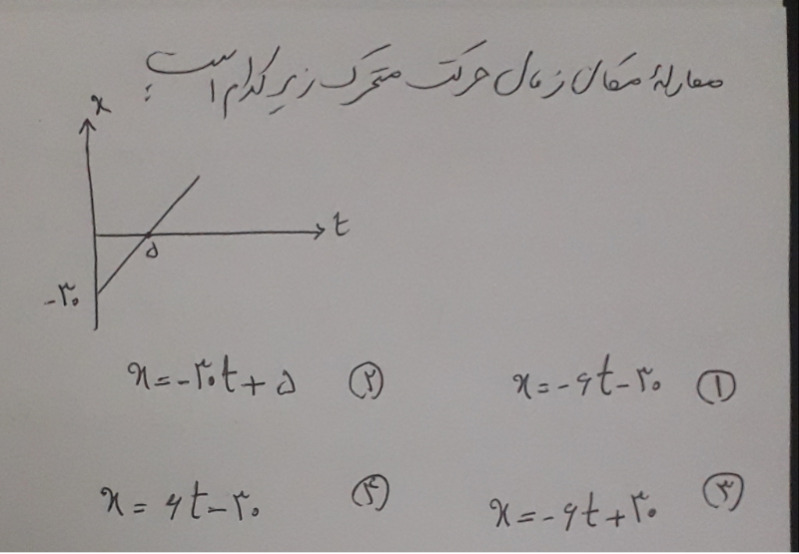 معادلهٔ مکان زمان حرکت متحرک زیر کدام است؟
x
t
۵
-۳۰
① x = -۶t - ۳۰
② x = -۳۰t + ۵
③ x = -۶t + ۳۰
④ x = ۶t - ۳۰